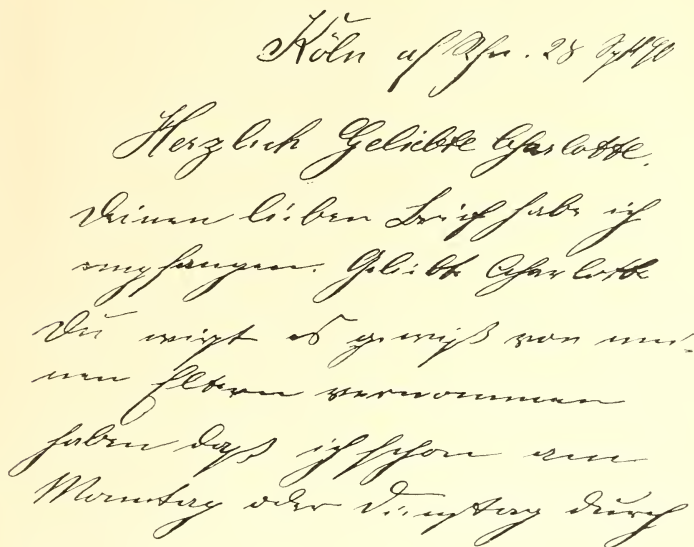 Köln a/ Rhn. 28 Sept 90
Herzlich Geliebte Charlotte.
Deinen lieben Brief habe ich
empfangen. Geliebte Charlotte
Du wirst es gewiß von mei-
nen Eltern vernommen
haben daß ich schon am
Monntag oder Dienstag durch